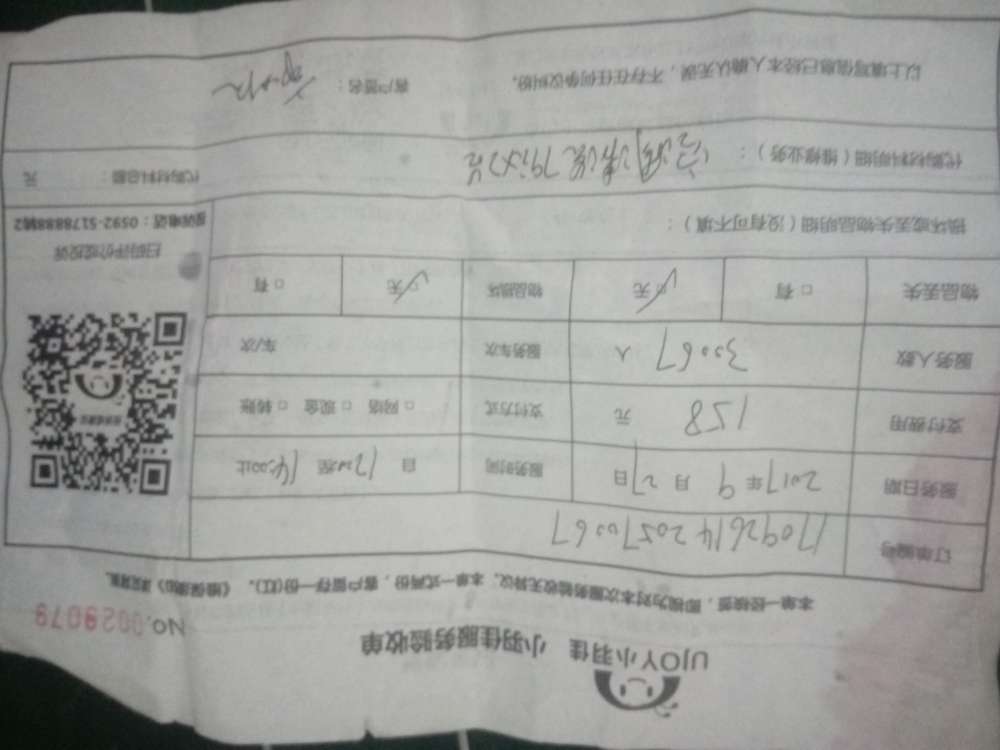 UJOY小羽佳 小羽佳服务验收单
NO.0029079
本单一经核签，即视为对本次服务验收无异议。本单一式两份，客户留存一份(红)。
订单编号 1709261420570067
服务日期 2017年9月27日 服务时间 自 12:00起 14:00止
支付费用 158 元 支付方式 □网络 □现金 □转账
服务人数 30067 人 服务车次 车/次
物品丢失 □有 ☑无 物品损坏 ☑无 □有
扫码评价或投诉
投诉电话：0592-5178888转2
损坏或丢失物品明细（没有可不填）：
代购材料明细（维修业务）： 空调清洗79元/次
代购材料总额： 元
以上填写信息已经本人确认无误，不存在任何争议纠纷。 客户签名：